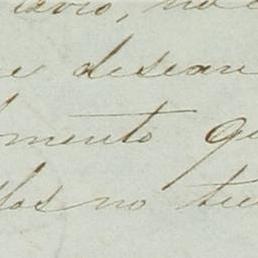 no
e desean
mento qu
llos no tie